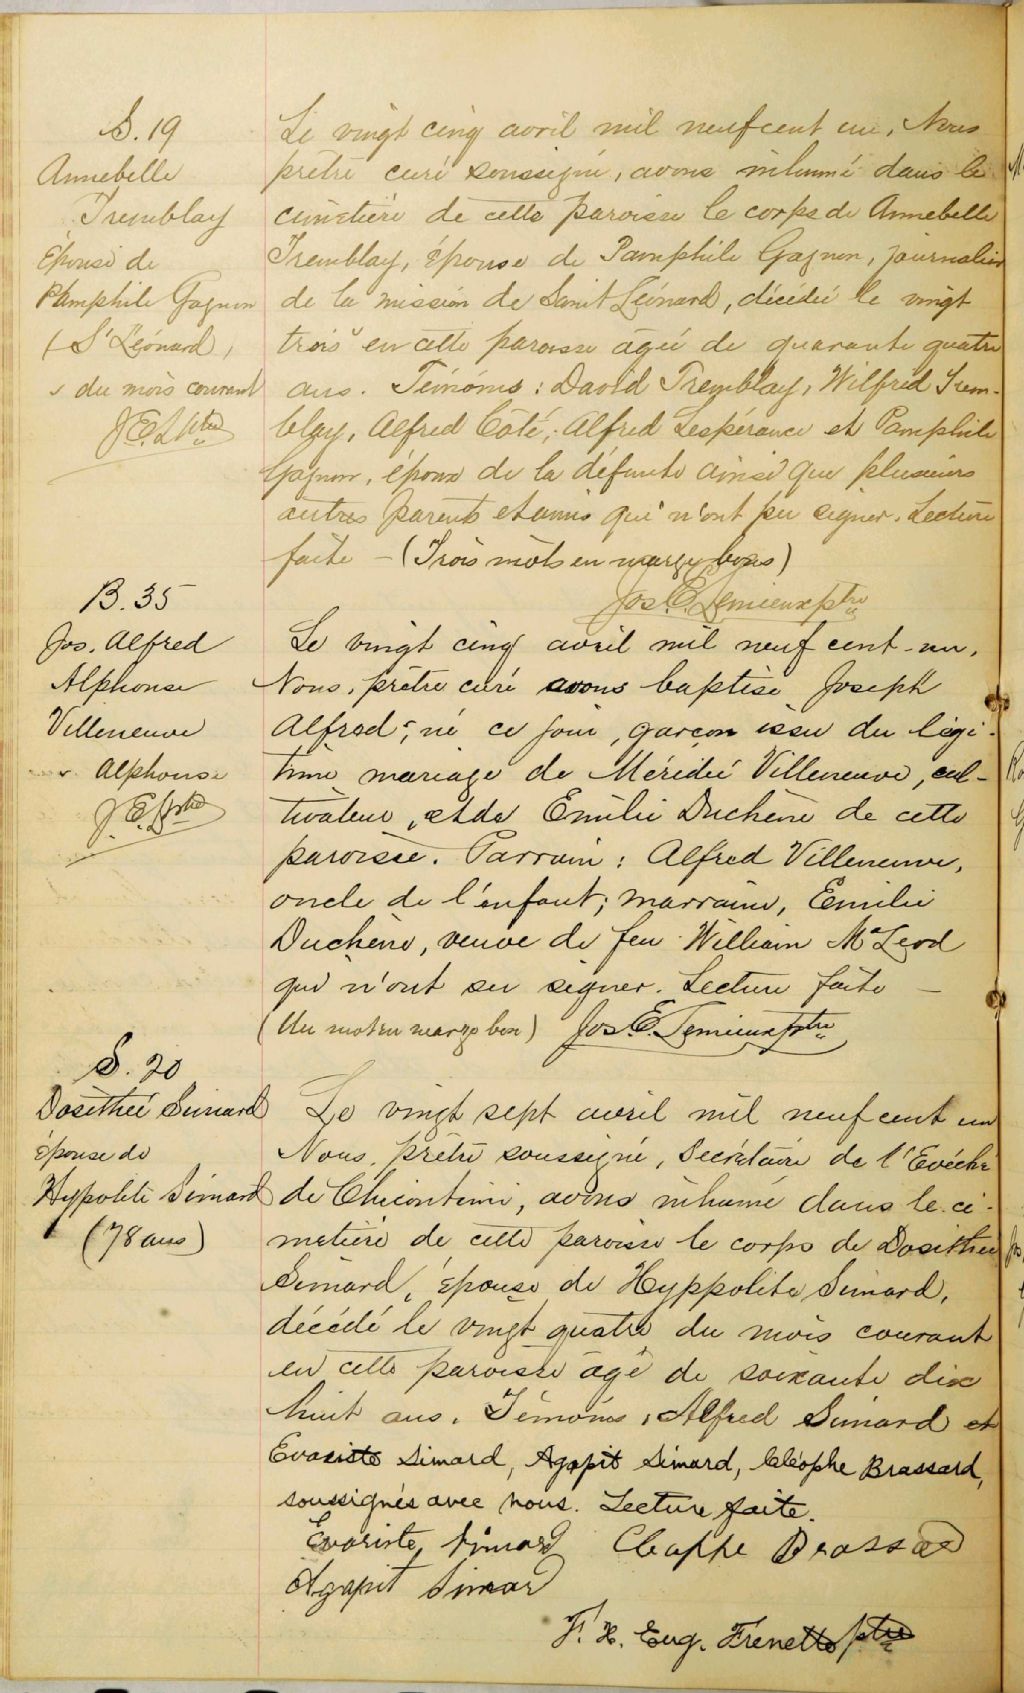 S. 19
Annebelle
Tremblay
Épouse de
Pamphile Gagnon
(St Léonard)
v du mois courant
J.E.L. Ptre
Le vingt cinq avril mil neuf cent un, Nous
prêtre curé soussigné, avons inhumé dans le
cimetière de cette paroisse le corps de Annebelle
Tremblay, épouse de Pamphile Gagnon, journalier
de la mission de Saint Léonard, décédée le vingt
trois v en cette paroisse agée de quarante quatre
ans. Témoins : David Tremblay, Wilfred Trem-
blay, Alfred Côté, Alfred Lespérance et Pamphile
Gagnon, époux de la défunte ainsi que plusieurs
autres parents et amis qui n'ont pu signer. Lecture
faite - (Trois mots en marge bons)
Jos. E. Lemieux ptre
B. 35
Jos. Alfred
Alphonse
Villeneuve
v. Alphonse
J.E.L. ptre
Le vingt cinq avril mil neuf cent-un,
Nous, prêtre curé avons baptisé Joseph
Alfred v, né ce jour, garçon issu du légi-
time mariage de Méridée Villeneuve, cul-
tivateur, et de Emilie Duchêne de cette
paroisse. Parrain : Alfred Villeneuve,
oncle de l'enfant; marraine, Emilie
Duchêne, veuve de feu William McLeod
qui n'ont su signer. Lecture faite -
(Un mot en marge bon) Jos. E. Lemieux ptre
S. 20
Dosithée Simard
épouse de
Hyppolite Simard
(78 ans)
Le vingt sept avril mil neuf cent un
Nous, prêtre soussigné, Secrétaire de l'Evêché
de Chicoutimi, avons inhumé dans le ci-
metière de cette paroisse le corps de Dosithée
Simard, épouse de Hyppolite Simard,
décédé le vingt quatre du mois courant
en cette paroisse agé de soixante dix
huit ans. Témoins, Alfred Simard et
Evariste Simard, Agapit Simard, Cléophe Brassard,
soussignés avec nous. Lecture faite.
Evariste Simard Cleophe Brassard
Agapit Simard
F. X. Eug. Frenette ptre